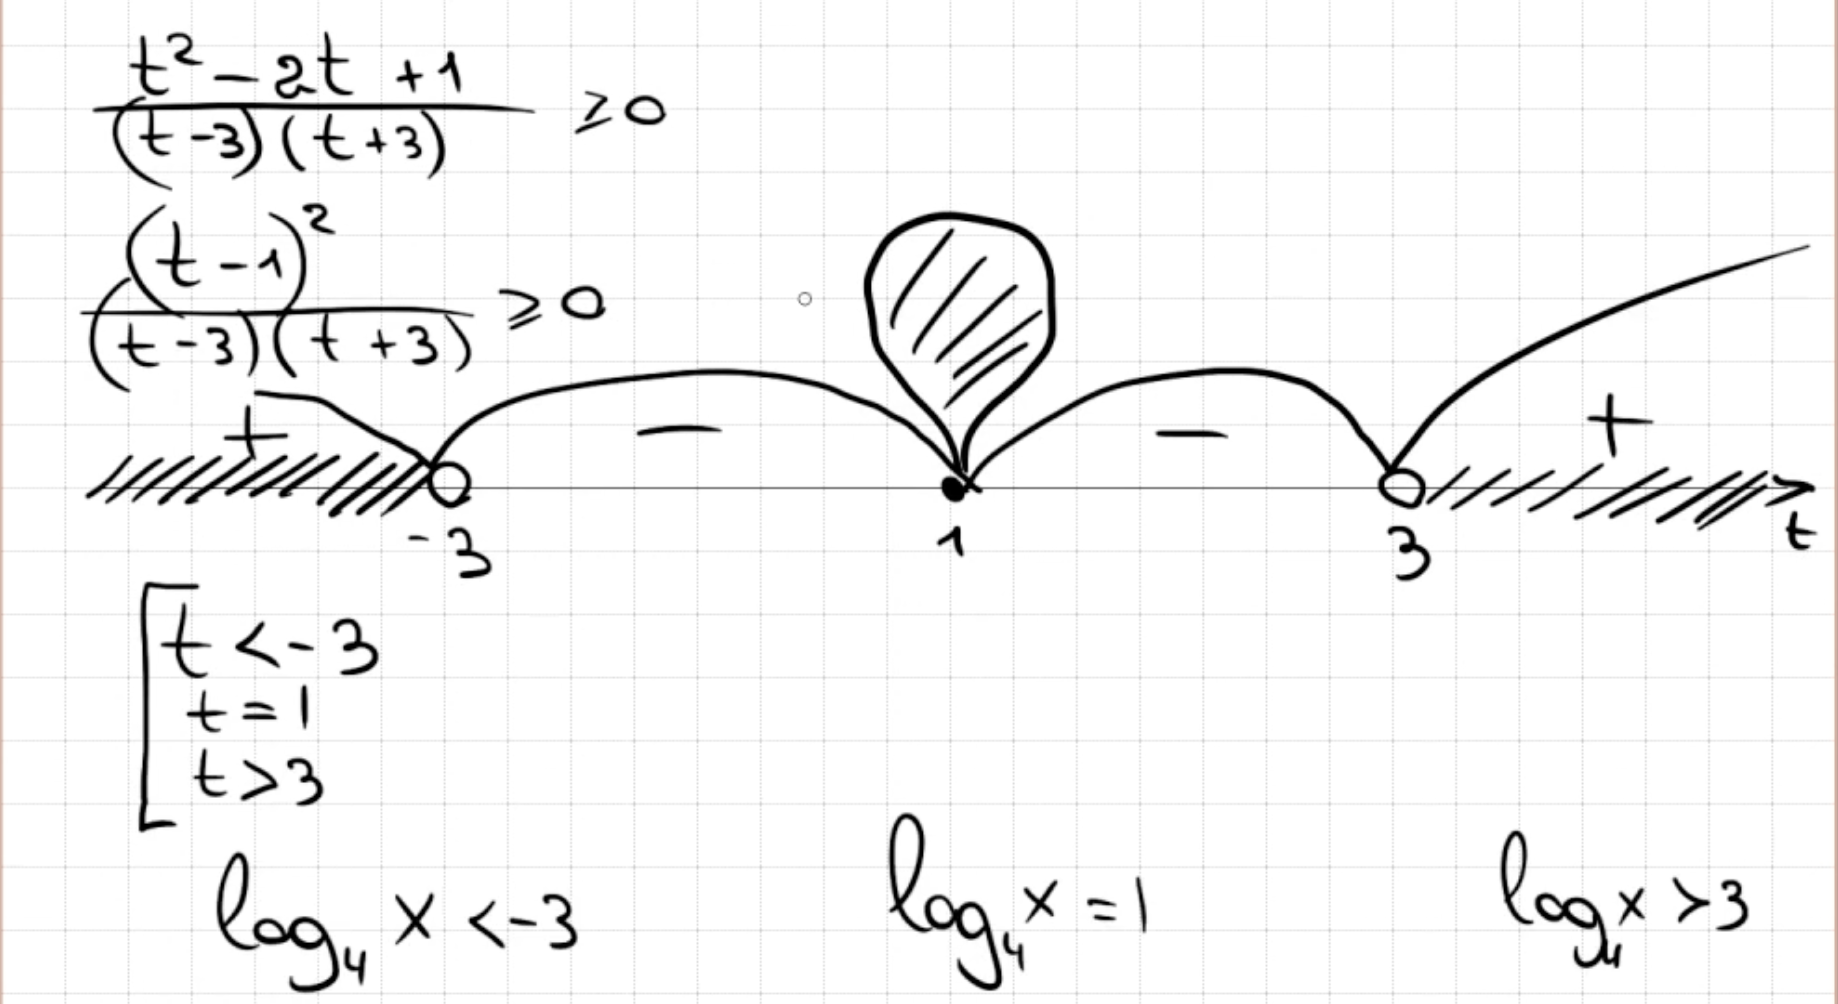 t² - 2t + 1
(t-3)(t+3)
≥ 0
(t-1)²
(t-3)(t+3)
≥ 0
+ - - +
-3 1 3 t
t < -3
t = 1
t > 3
log₄ x < -3 log₄ x = 1 log₄ x > 3